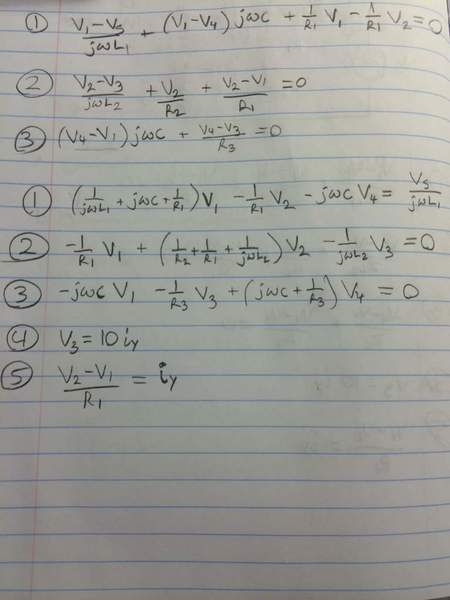 ① (V₁-Vs)/(jωL₁) + (V₁-V₄)jωC + 1/R₁ V₁ - 1/R₁ V₂ = 0
② (V₂-V₃)/(jωL₂) + V₂/R₂ + (V₂-V₁)/R₁ = 0
③ (V₄-V₁)jωC + (V₄-V₃)/R₃ = 0
① (1/(jωL₁) + jωC + 1/R₁)V₁ - 1/R₁ V₂ - jωC V₄ = Vs/(jωL₁)
② -1/R₁ V₁ + (1/R₂ + 1/R₁ + 1/(jωL₂))V₂ - 1/(jωL₂) V₃ = 0
③ -jωC V₁ - 1/R₃ V₃ + (jωC + 1/R₃)V₄ = 0
④ V₃ = 10 iy
⑤ (V₂-V₁)/R₁ = iy